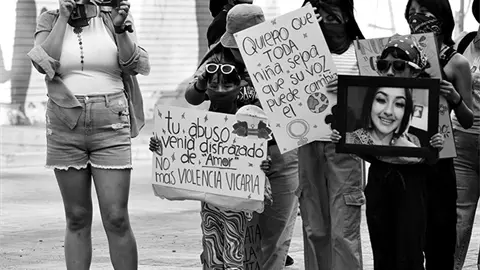 Quiero que
TODA
niña sepa
que su voz
puede cambiar
el
tu abuso
venía disfrazado
de "Amor"
No
mas VIOLENCIA VICARIA